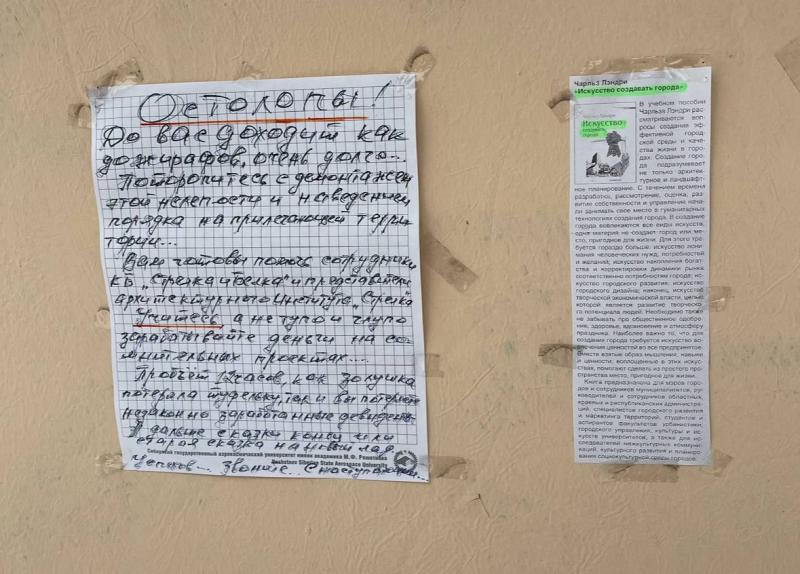 Остолопы!
До вас доходит как
до жирафов, очень долго...
Поторопитесь с демонтажем
этой нелепости и наведением
порядка на прилегающей терри
тории...
Вам готовы помочь сотрудники
КБ "Стрелка и Белка" и представители
архитектурного института "Стрелка
Учитесь, а не тупо и глупо
зарабатывайте деньги на со
мнительных проектах....
Пробьёт 12 часов, как золушка
потеряла туфельку, так и вы потеряете
незаконно заработанные
А дальше сказки конец или
старая сказка на новый лад
Сибирский государственный аэрокосмический университет имени академика М.Ф. Решетнева
Reshetnev Siberian State Aerospace University
Успехов... Звоните... С наступающим...
Чарльз Лэндри
«Искусство создавать города»
Чарльз Лэндри
Искусство
создавать
города
В учебном пособии
Чарльза Лэндри рас-
сматриваются воп-
росы создания эф-
фективной город-
ской среды и каче-
ства жизни в горо-
дах. Создание горо-
да подразумевает
не только архитек-
турное и ландшафт-
ное планирование. С течением времени
разработка, рассмотрение, оценка, раз-
витие собственности и управление нача-
ли занимать свое место в гуманитарных
технологиях создания города. В создание
города вовлекаются все виды искусств,
одна материя не создает город или ме-
сто, пригодное для жизни. Для этого тре-
буется гораздо больше: искусство пони-
мания человеческих нужд, потребностей
и желаний; искусство накопления богат-
ства и корректировки динамики рынка
соответственно потребностям города; ис-
кусство городского развития; искусство
городского дизайна; наконец, искусство
творческой экономической власти, целью
которой является развитие творческо-
го потенциала людей. Необходимо также
не забывать про общественное одобре-
ние, здоровье, вдохновение и атмосферу
праздника. Наиболее важно то, что для
создания города требуется искусство во-
влечения ценностей во все предприятие.
Вместе взятые образ мышления, навыки
и ценности, воплощенные в этих искус-
ствах, помогают сделать из простого про-
странства место, пригодное для жизни.
Книга предназначена для мэров горо-
дов и сотрудников муниципалитетов, ру-
ководителей и сотрудников областных,
краевых и республиканских администра-
ций, специалистов городского развития
и маркетинга территорий, студентов и
аспирантов факультетов урбанистики,
городского управления, культуры и ис-
кусств университетов, а также для ис-
следователей межкультурных коммуни-
каций, культурного развития и планиро-
вания социокультурной среды городов.